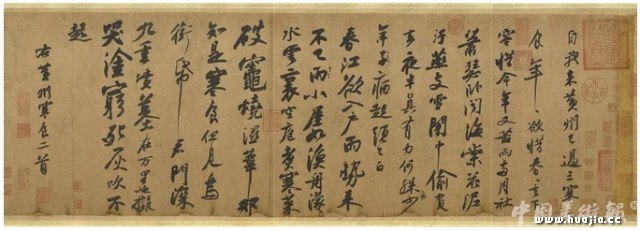 自我來黃州已過三寒
食年〻欲惜春〻去不
容惜今年又苦雨兩月秋
蕭瑟臥聞海棠花泥
汙燕支雪闇中偷負
去夜半真有力何殊少
年子病起頭已白
春江欲入戶雨勢來
不已雨小屋如漁舟濛〻
水雲裏空庖煮寒菜
破竈燒濕葦那
知是寒食但見烏
銜帋君門深
九重墳墓在万里也擬
哭塗窮死灰吹不
起
右黃州寒食二首
中国美術報
www.huajia.cc